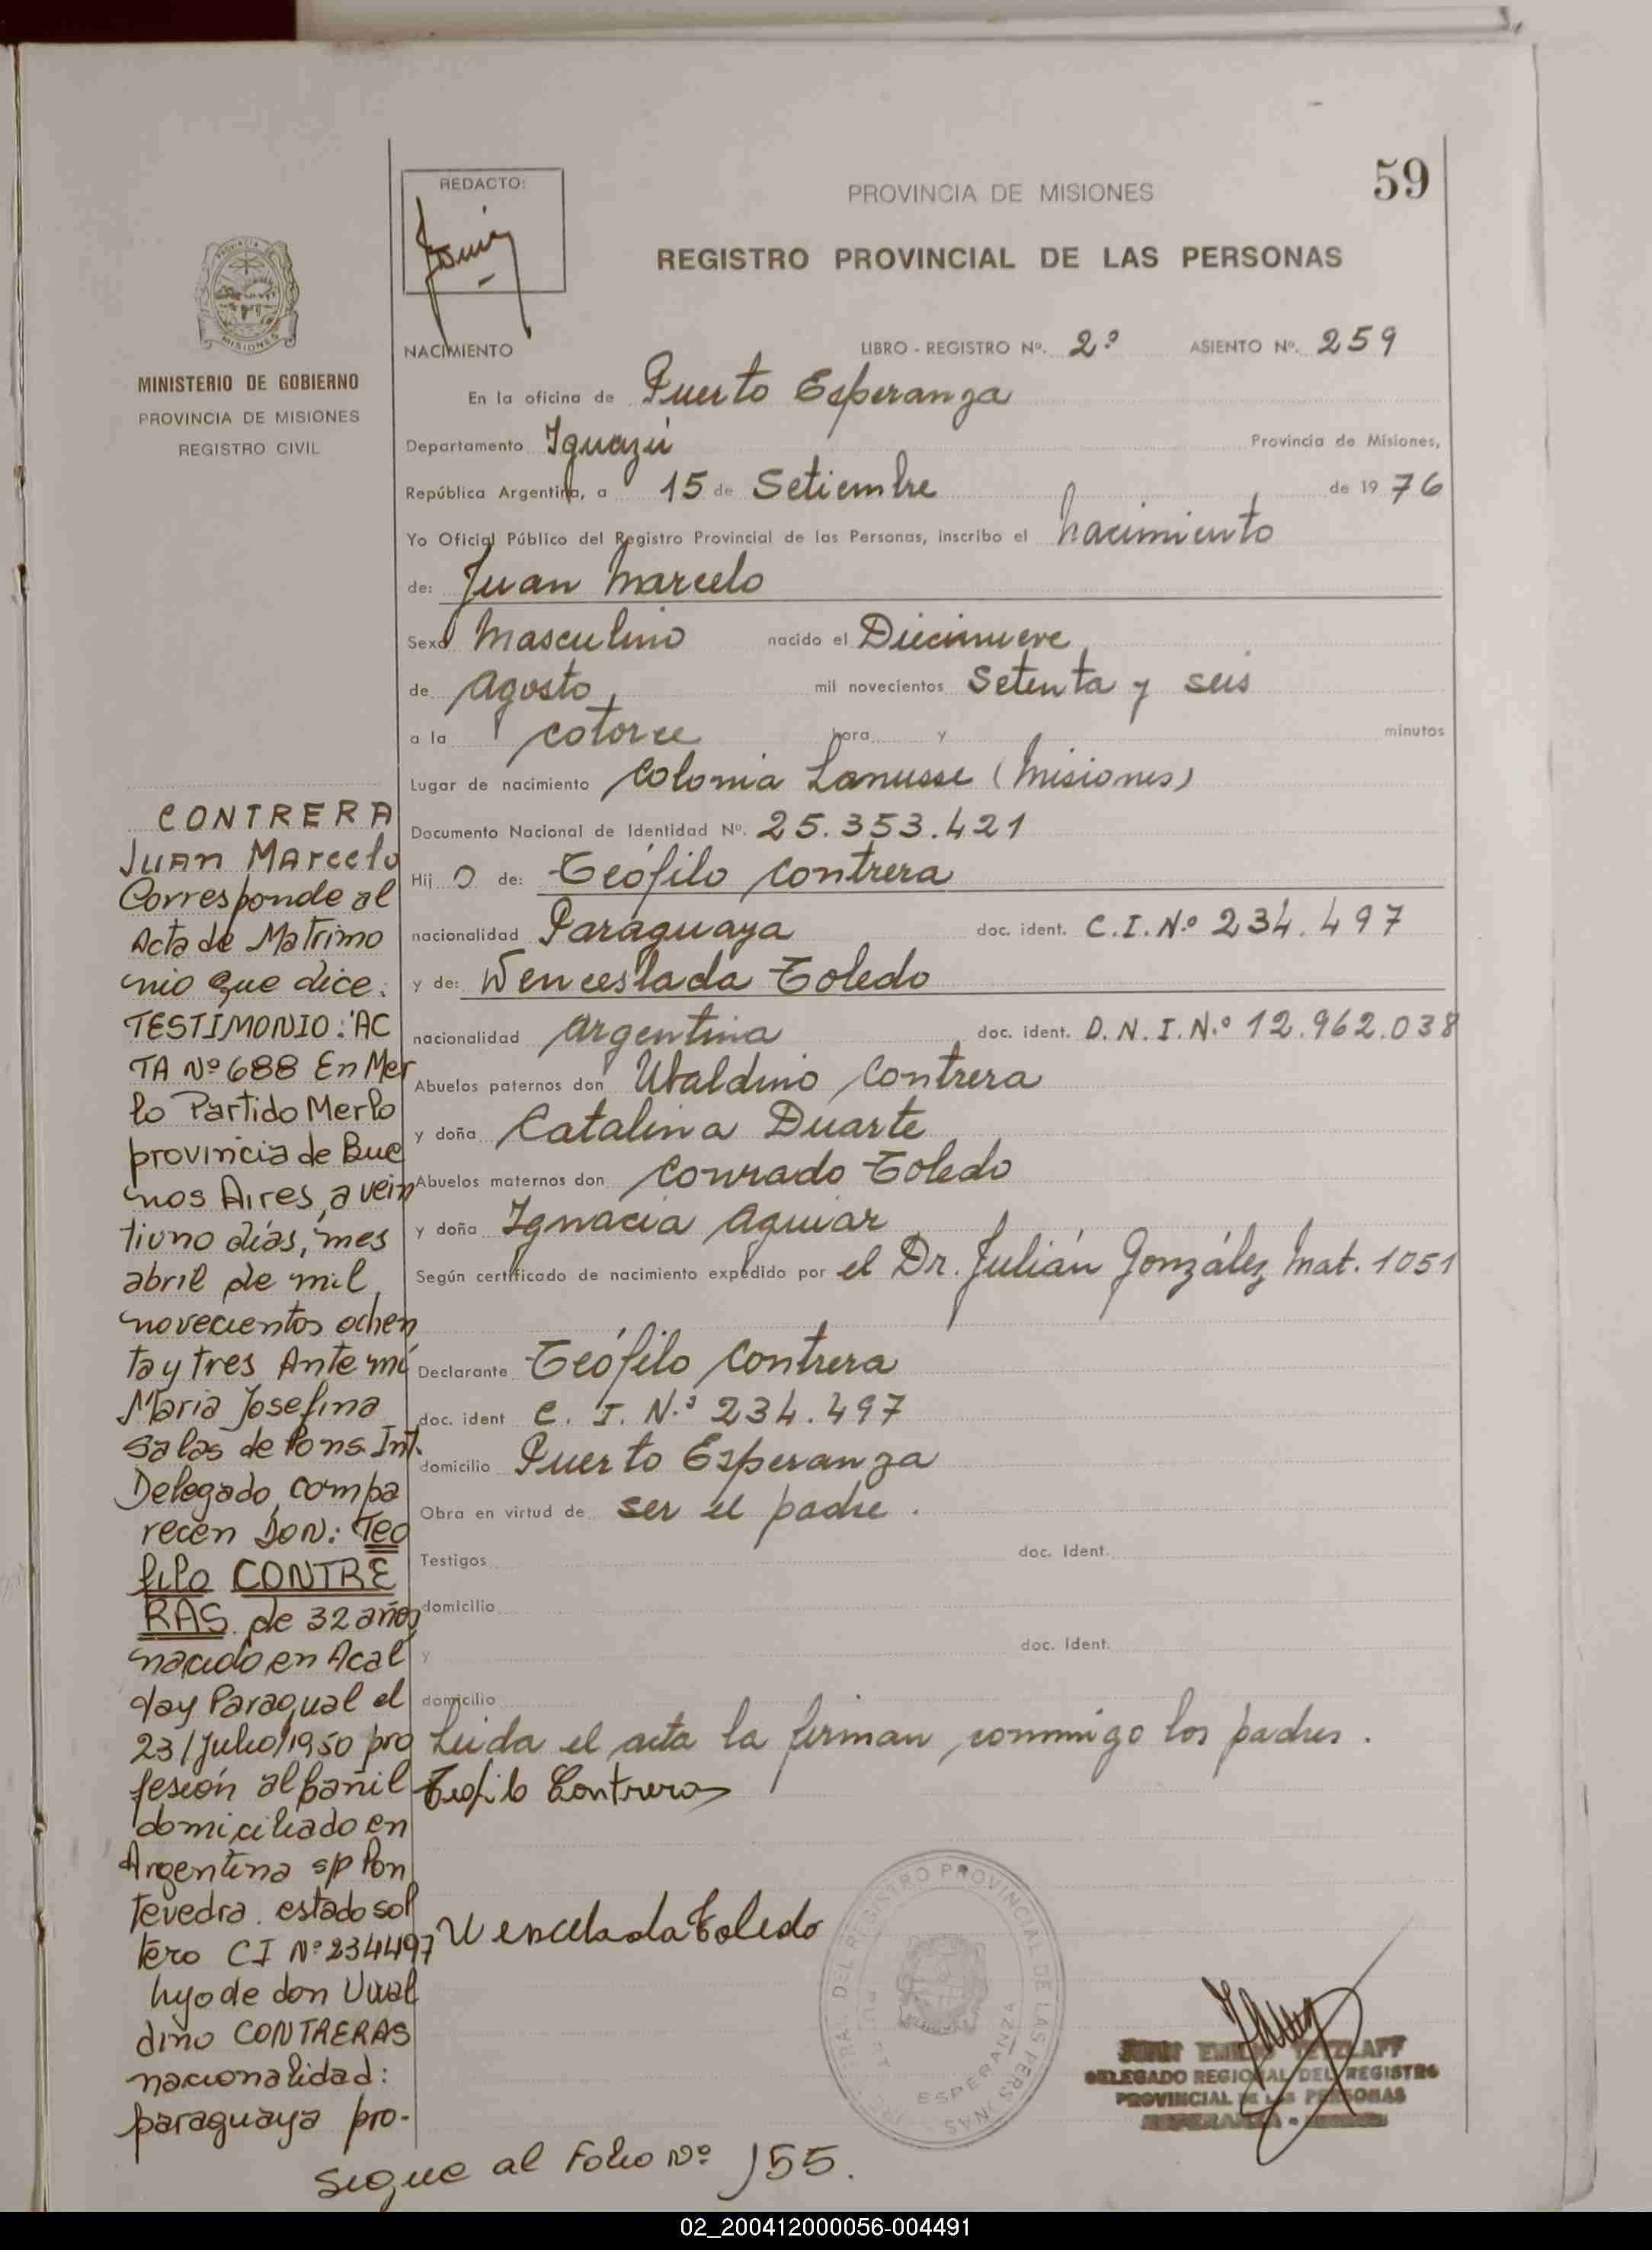 59
REDACTO:
PROVINCIA DE MISIONES
REGISTRO PROVINCIAL DE LAS PERSONAS
MISIONES
MINISTERIO DE GOBIERNO
PROVINCIA DE MISIONES
REGISTRO CIVIL
NACIMIENTO LIBRO - REGISTRO Nº. 2º ASIENTO Nº. 259
En la oficina de Puerto Esperanza
Departamento Iguazú Provincia de Misiones,
República Argentina, a 15 de Setiembre de 19 76
Yo Oficial Público del Registro Provincial de las Personas, inscribo el nacimiento
de: Juan Marcelo
Sexo Masculino nacido el Diecinueve
de Agosto, mil novecientos Setenta y seis
a la catorce hora y minutos
Lugar de nacimiento Colonia Lanusse (Misiones)
Documento Nacional de Identidad Nº. 25.353.421
Hij o de: Teófilo Contrera
nacionalidad Paraguaya doc. ident. C.I.Nº 234.497
y de: Wenceslada Toledo
nacionalidad Argentina doc. ident. D.N.I.N.º 12.962.038
Abuelos paternos don Ubaldino Contrera
y doña Catalina Duarte
Abuelos maternos don Conrado Toledo
y doña Ignacia Aguiar
Según certificado de nacimiento expedido por el Dr. Julián González Mat. 1051
Declarante Teófilo Contrera
doc. ident C. I. N.º 234.497
domicilio Puerto Esperanza
Obra en virtud de ser el padre.
Testigos doc. Ident.
domicilio
y doc. Ident.
domicilio
Leida el acta la firman conmigo los padres.
Teofilo Contreras
Wencelada Toledo
CONTRERA
Juan Marcelo
Corresponde al
Acta de Matrimo
nio que dice:
TESTIMONIO: AC
TA Nº 688 En Mer
lo Partido Merlo
provincia de Bue
nos Aires, a vein
tiuno días, mes
abril de mil
novecientos ochen
ta y tres Ante mí
Maria Josefina
Salas de Pons. Int.
Delegado, compa
recen DON: Teo
filo CONTRE
RAS de 32 años
nacido en Acal
day Paragual el
23/Julio/1950 pro
fesión albañil
domiciliado en
Argentina s/p Pon
tevedra. estado sol
tero CI Nº 234497
hijo de don Uval
dino CONTRERAS
nacionalidad:
paraguaya pro-
sigue al Folio Nº 155.
DEL REGISTRO PROVINCIAL DE LAS PERSONAS
ESPERANZA
JUAN EMILIO TETZLAFF
DELEGADO REGIONAL DEL REGISTRO
PROVINCIAL DE LAS PERSONAS
02_200412000056-004491